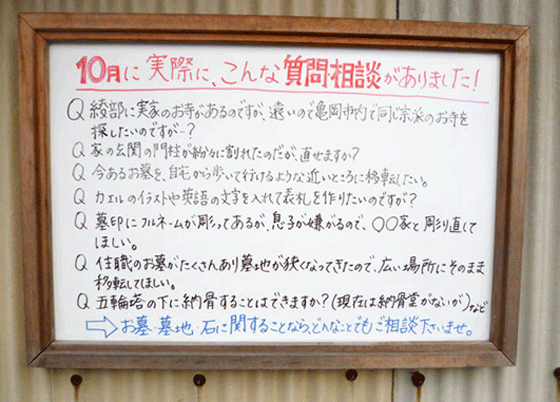 10月に実際に、こんな質問相談がありました!
Q 綾部に実家のお寺があるのですが、遠いので亀岡市内で同じ宗派のお寺を
探したいのですが…?
Q 家の玄関の門柱が粉々に割れたのだが、直せますか?
Q 今あるお墓を、自宅から歩いて行けるような近いところに移転したい。
Q カエルのイラストや英語の文字を入れて表札を作りたいのですが?
Q 墓印にフルネームが彫ってあるが、息子が嫌がるので、〇〇家と彫り直して
ほしい。
Q 住職のお墓がたくさんあり墓地が狭くなってきたので、広い場所にそのまま
移転してほしい。
Q 五輪塔の下に納骨することはできますか?(現在は納骨堂がないが)など
⇨お墓・墓地・石に関することなら、どんなことでもご相談下さいませ。